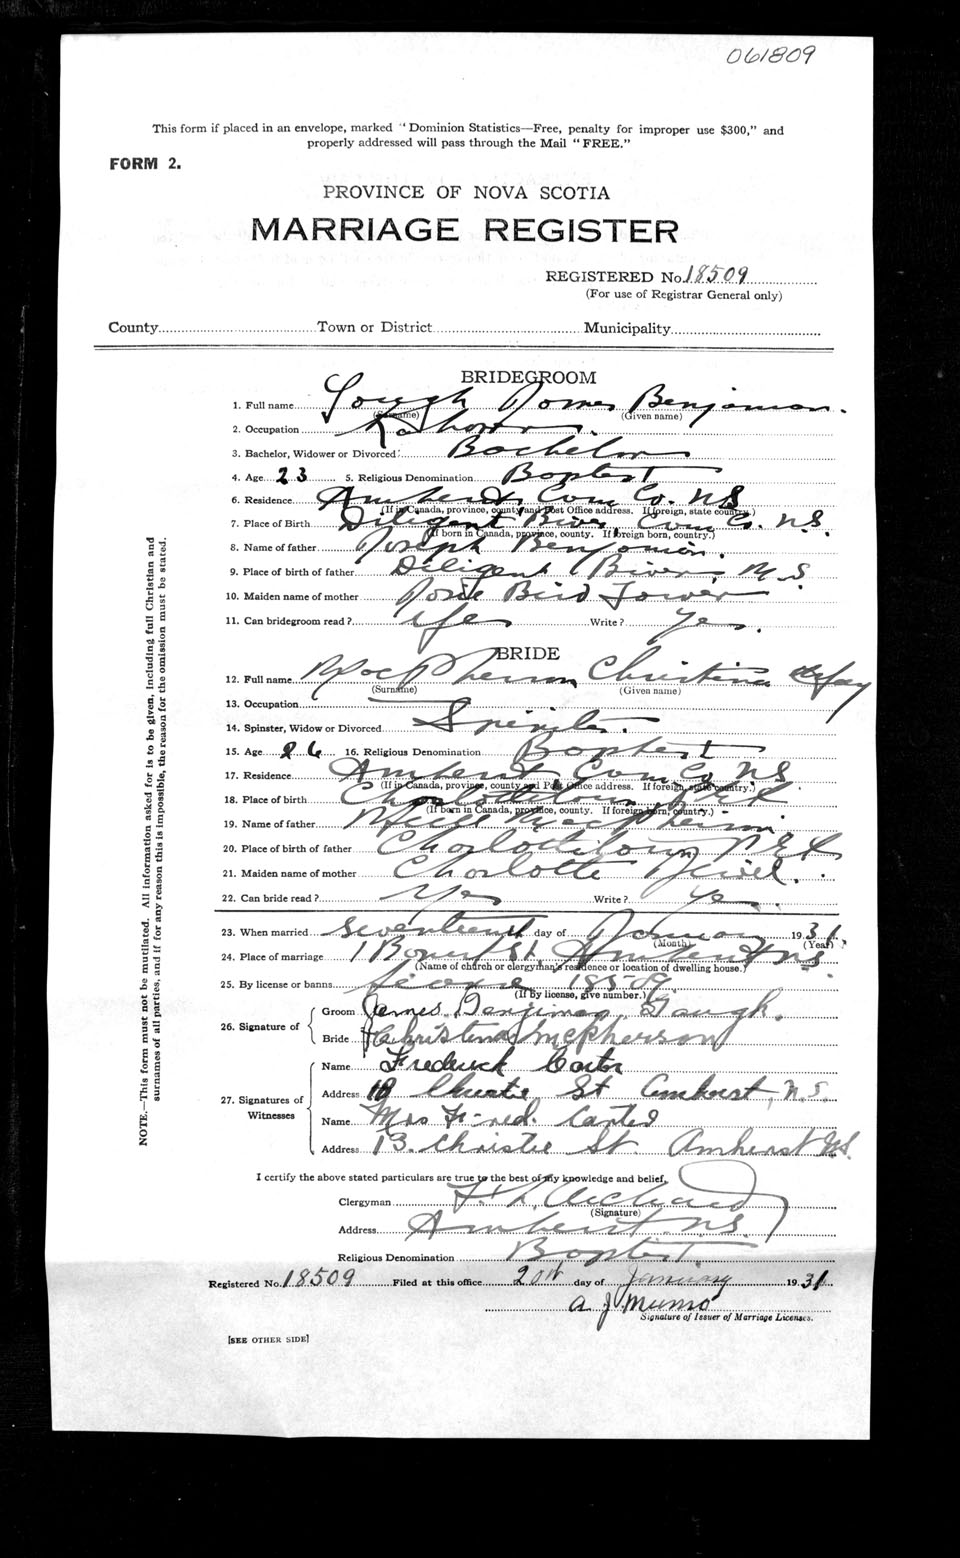 061809
This form if placed in an envelope, marked "Dominion Statistics—Free, penalty for improper use $300," and
properly addressed will pass through the Mail "FREE."
FORM 2.
PROVINCE OF NOVA SCOTIA
MARRIAGE REGISTER
REGISTERED No. 18509
(For use of Registrar General only)
County Town or District Municipality
BRIDEGROOM
1. Full name Gough James Benjamin.
(Surname) (Given name)
2. Occupation
3. Bachelor, Widower or Divorced Bachelor
4. Age 23 5. Religious Denomination Baptist
6. Residence Amherst Cum Co. NS
(If in Canada, province, county and Post Office address. If foreign, state country.)
7. Place of Birth Diligent River, Cum Co. N.S.
(If born in Canada, province, county. If foreign born, country.)
8. Name of father Joseph Benjamin.
9. Place of birth of father Diligent River, N.S.
10. Maiden name of mother Bird
11. Can bridegroom read? Yes Write? Yes.
BRIDE
12. Full name MacPherson Christina
(Surname) (Given name)
13. Occupation
14. Spinster, Widow or Divorced Spinster.
15. Age 26 16. Religious Denomination Baptist
17. Residence Amherst Cum Co NS
(If in Canada, province, county and Post Office address. If foreign, state country.)
18. Place of birth Charlottetown P.E.I.
(If born in Canada, province, county. If foreign born, country.)
19. Name of father Macpherson
20. Place of birth of father Charlottetown P.E.I.
21. Maiden name of mother Charlotte
22. Can bride read? Yes Write? Yes.
23. When married seventeenth day of January 1931
(Month) (Year)
24. Place of marriage St. Amherst N.S.
(Name of church or clergyman's residence or location of dwelling house.)
25. By license or banns license 18509.
(If by license, give number.)
26. Signature of Groom James Benjiman Gough.
Bride Christena McPherson
27. Signatures of Witnesses Name Frederick Carter
Address Christie St Amherst, N.S.
Name Mrs Fred. Carter
Address 13 Christie St. Amherst NS.
I certify the above stated particulars are true to the best of my knowledge and belief.
Clergyman
(Signature)
Address Amherst N.S.
Religious Denomination Baptist
Registered No. 18509 Filed at this office 20th day of January 1931
A J Munro
Signature of Issuer of Marriage Licenses.
[SEE OTHER SIDE]
NOTE.—This form must not be mutilated. All information asked for is to be given, including full Christian and
surnames of all parties, and if for any reason this is impossible, the reason for the omission must be stated.